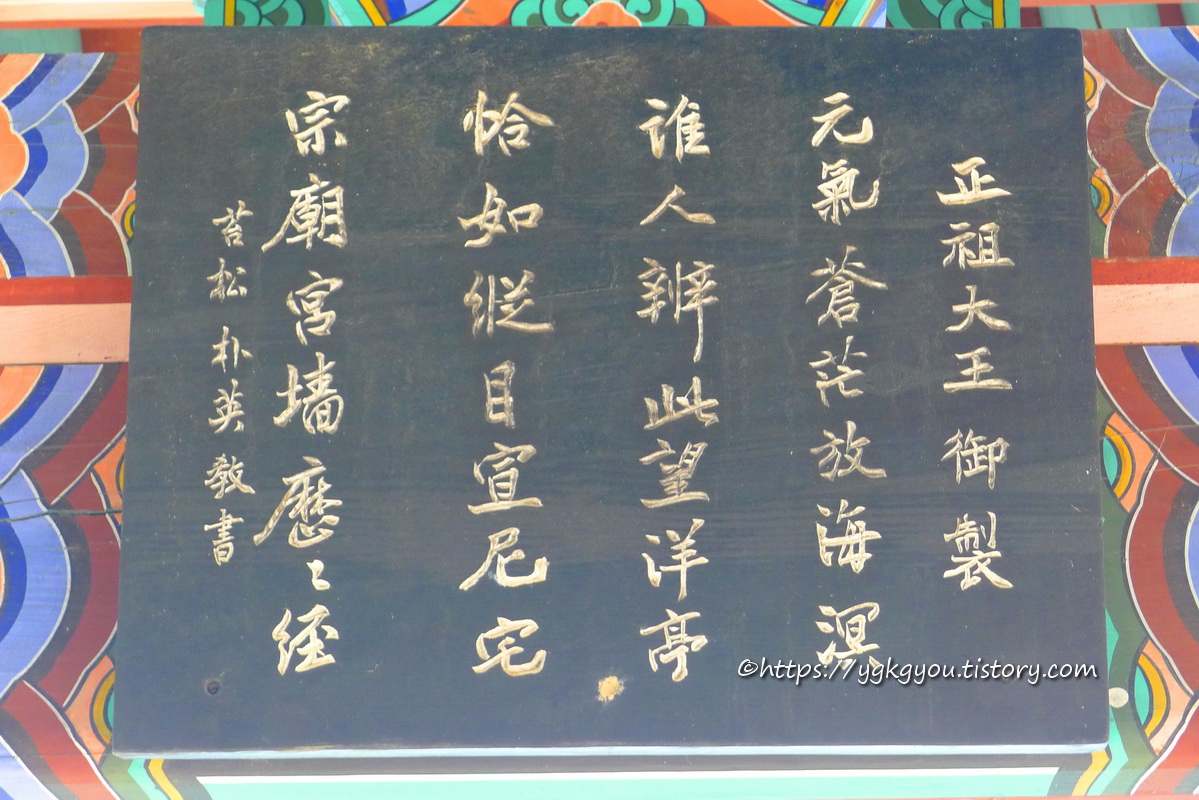 正祖大王 御製
元氣蒼茫放海溟
誰人辨此望洋亭
恰如縱目宣尼宅
宗廟宮墻歷〻經
苔松 朴英敎書
©https://ygkgyou.tistory.com